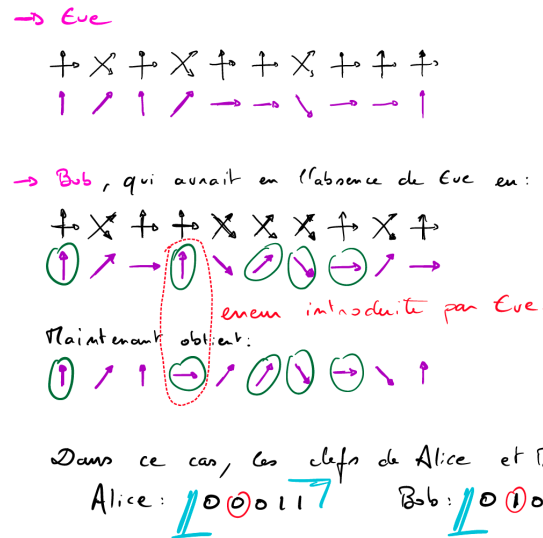 → Eve
→ Bob, qui aurait en l'absence de Eve eu :
erreur introduite par Eve
Maintenant obtient :
Dans ce cas, les clefs de Alice et
Alice : 00011
Bob : 010